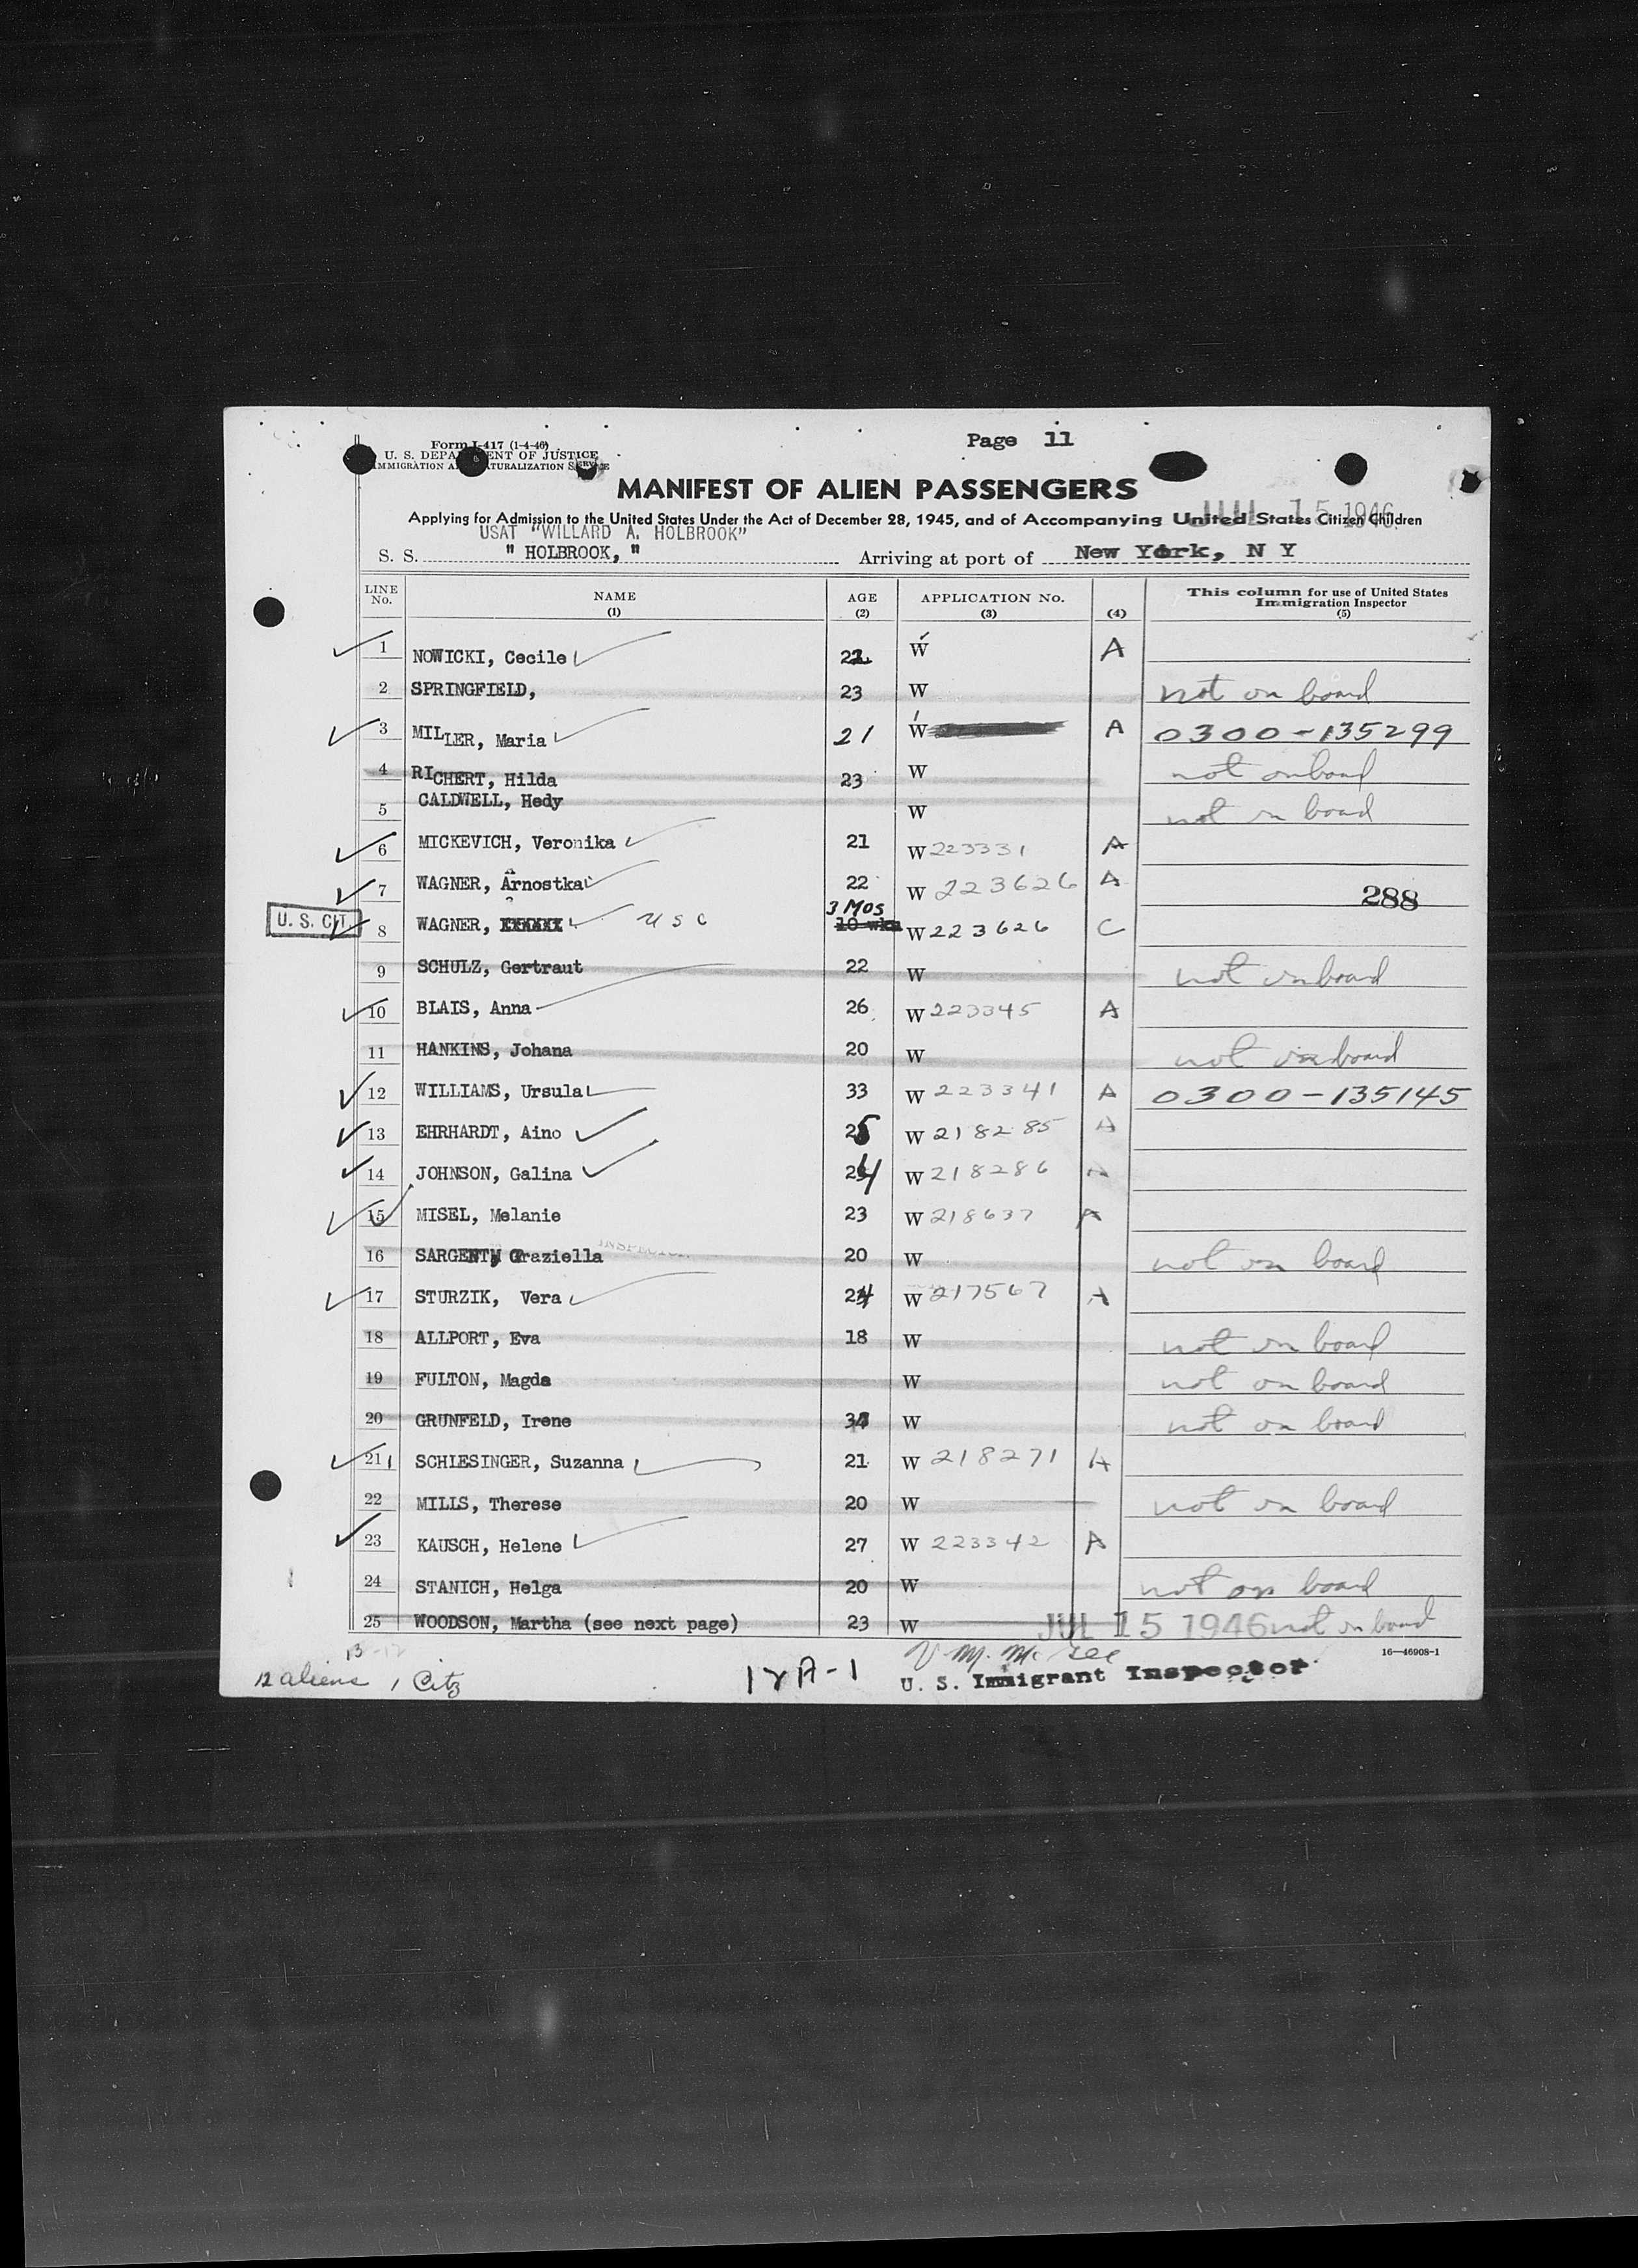 Form I-417 (1-4-46)
U. S. DEPARTMENT OF JUSTICE
IMMIGRATION AND NATURALIZATION SERVICE
Page 11
MANIFEST OF ALIEN PASSENGERS
JUL 15 1946
Applying for Admission to the United States Under the Act of December 28, 1945, and of Accompanying United States Citizen Children
USAT "WILLARD A. HOLBROOK"
S. S. " HOLBROOK, " Arriving at port of New York, N Y
LINE No. NAME (1) AGE (2) APPLICATION No. (3) (4) This column for use of United States Immigration Inspector (5)
1 NOWICKI, Cecile W A
2 SPRINGFIELD, 23 W not on board
3 MILLER, Maria 21 W A 0300-135299
4 RICHERT, Hilda 23 W not on board
5 CALDWELL, Hedy W not on board
6 MICKEVICH, Veronika 21 W 223331 A
7 WAGNER, Arnostka 22 W 223626 A
288
U. S. CIT. 8 WAGNER, U S C 3 Mos 10 wks W 223626 C
9 SCHULZ, Gertraut 22 W not on board
10 BLAIS, Anna 26 W 223345 A
11 HANKINS, Johana 20 W not on board
12 WILLIAMS, Ursula 33 W 223341 A 0300-135145
13 EHRHARDT, Aino 25 W 218285 A
14 JOHNSON, Galina 24 W 218286 A
15 MISEL, Melanie 23 W 218637 A
INSPECTOR
16 SARGENT, Graziella 20 W not on board
17 STURZIK, Vera 24 W 217567 A
18 ALLPORT, Eva 18 W not on board
19 FULTON, Magda W not on board
20 GRUNFELD, Irene W not on board
21 SCHLESINGER, Suzanna 21 W 218271 A
22 MILLS, Therese 20 W not on board
23 KAUSCH, Helene 27 W 223342 A
24 STANICH, Helga 20 W not on board
25 WOODSON, Martha (see next page) 23 W JUL 15 1946 not on board
16—46908-1
13-12
12 aliens 1 Citz
12A-1
U. S. Immigrant Inspector